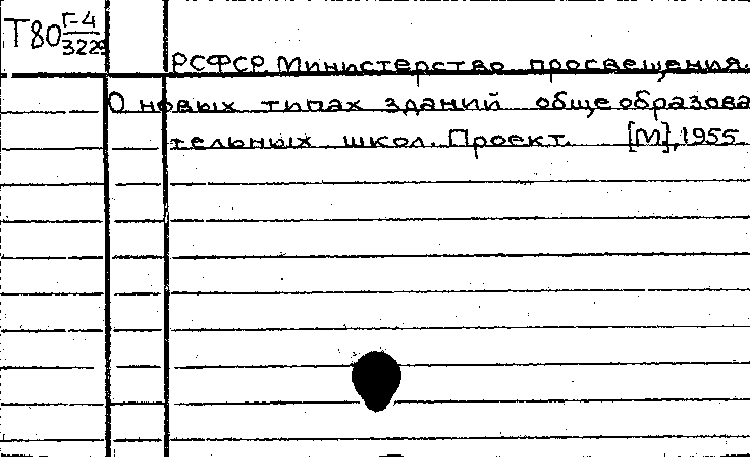 Т80 Г-4
3229
РСФСР Министерство просвещения.
О новых типах зданий общеобразова
тельных школ. Проект. [М], 1955